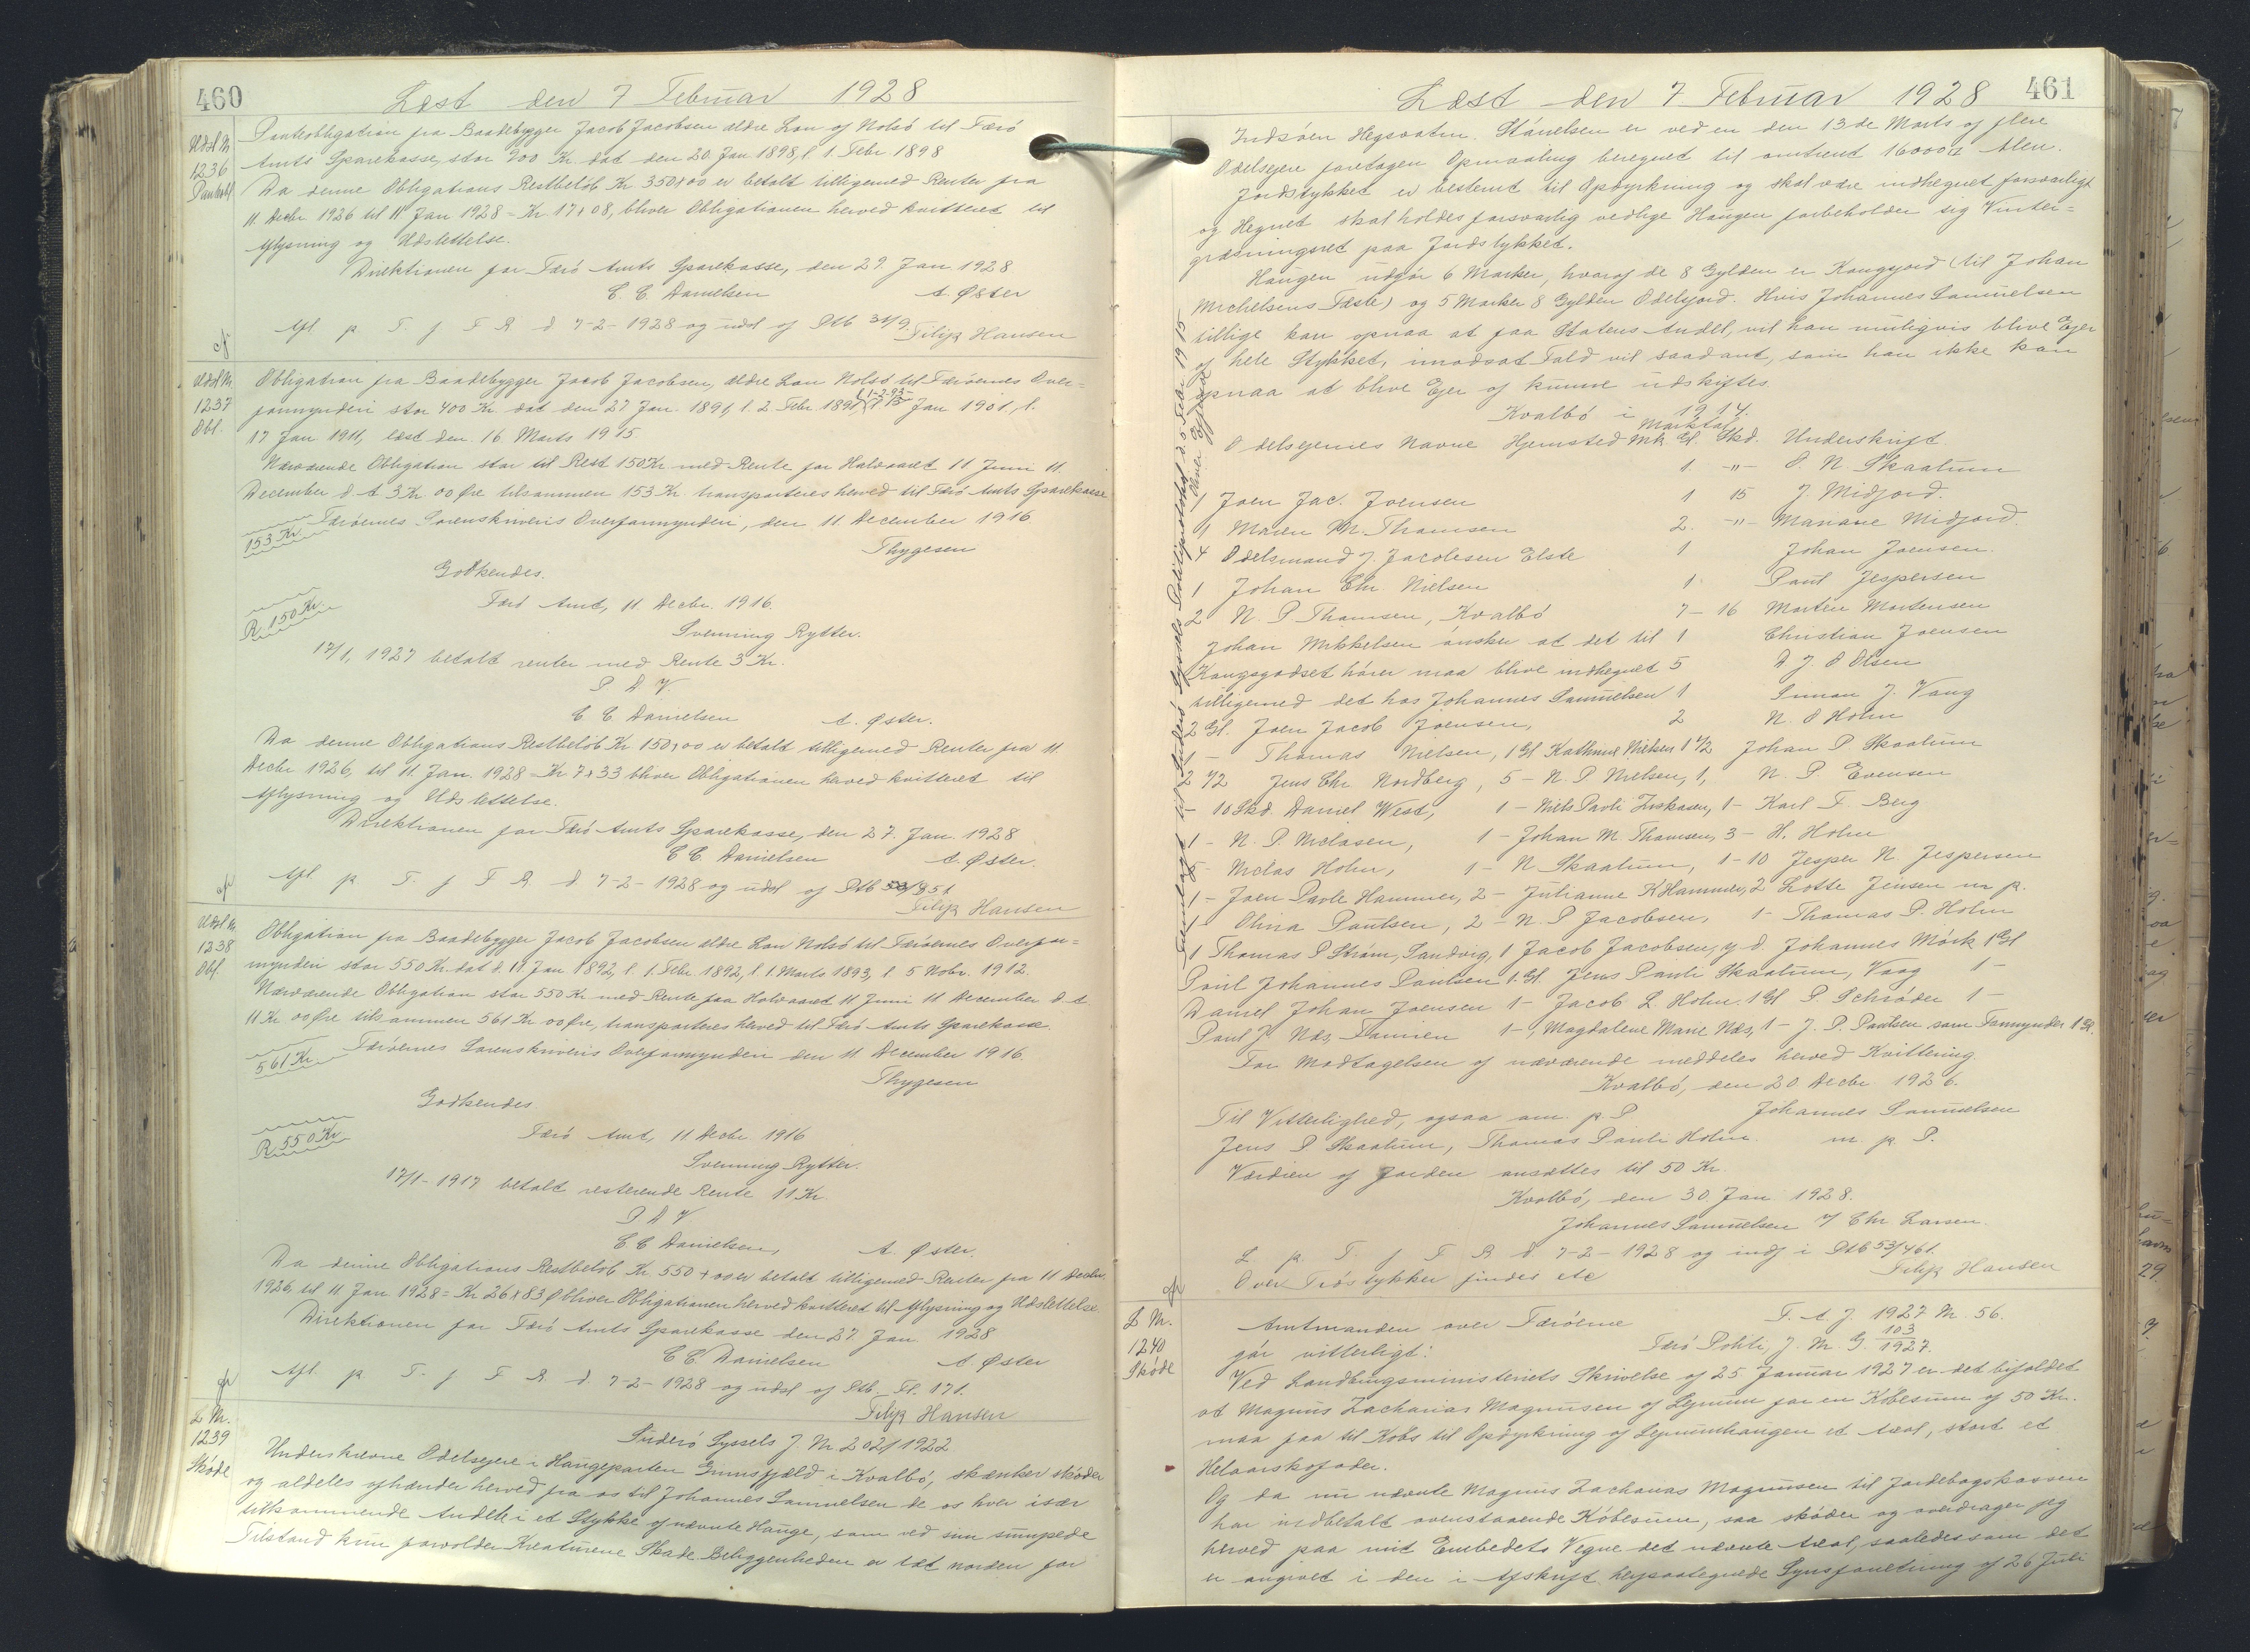 460
Læst den 7 Februar 1928
Udsl Nr
1236
Pantobl
Panteobligation fra Baadebygger Jacob Jacobsen ældre Lon af Nolsö til Færö
Amts Sparekasse, stor 900 Kr. dat den 20. Jan 1898, l. 1. Febr. 1898
Da denne Obligations Restbelöb Kr 350,00 er betalt tilligemed Renter fra
11. Decbr 1926 til 11 Jan 1928 = Kr 17,08, bliver Obligationen herved kvitteret til
Aflysning og Udslettelse.
Direktionen for Færö Amts Sparekasse, den 27. Jan 1928
C. C. Danielsen A. Øster
Afl p. T. f F R. d. 7-2-1928 og udsl af Ptb
Filip Hansen
Udsl Nr
1237
Obl.
Obligation fra Baadebygger Jacob Jacobsen, ældre Lon Nolsö til Færöernes Over=
formynderi stor 400 Kr. dat den 27 Jan. 1891, l. 2. Febr. 1891, Jan 1901, l.
17 Jan 1911, læst den 16 Marts 1915.
Nærværende Obligation stor til Rest 150 Kr. med Rente for Halvaaret 11 Juni 11.
December d. A 3 Kr 00 Øre tilsammen 153 Kr. transporteres herved til Færö Amts Sparekasse
153 Kr.
Færöernes Sorenskriveris Overformynderi, den 11. December 1916
Thygesen
Godkendes.
R. 150 Kr.
Færö Amt, 11 Decbr. 1916.
Svenning Rytter.
17/1, 1927 betalt renter med Rente 3 Kr.
P D V
C. C. Danielsen A. Øster.
Da denne Obligations Restbelöb Kr 150,00 er betalt tilligemed Renter fra 11.
Decbr 1926, til 11. Jan. 1928 = Kr 7,33 bliver Obligationen herved kvitteret til
Aflysning og Udslettelse.
Direktionen for Færö Amts Sparekasse, den 27. Jan. 1928
C C. Danielsen A. Øster.
Afl. p. T. f F R. d. 7-2-1928 og udsl af Ptb
Filip Hansen
Udsl Nr
1238
Obl.
Obligation fra Baadebygger Jacob Jacobsen ældre Lon Nolsö til Færöernes Overfor=
mynderi stor 550 Kr. dat d. 11 Jan 1892, l. 1. Febr. 1892, l. 1. Marts 1893, l. 5 Nobr. 1912.
Nærværende Obligation stor 550 Kr med Rente for Halvaaret 11 Juni 11 December d. A
11 Kr 00 Øre tilsammen 561 Kr 00 Øre, transporteres herved til Færö Amts Sparekasse.
561 Kr.
Færöernes Sorenskriveris Overformynderi den 11 December 1916.
Thygesen
Godkendes
R. 550 Kr
Færö Amt, 11 Decbr 1916
Svenning Rytter.
17/1-1917 betalt resterende Rente 11 Kr.
P D V
C C Danielsen, A. Øster.
Da denne Obligations Restbelöb Kr. 550,00 er betalt tilligemed Renter fra 11 Decbr.
1926, til 11 Jan 1928 = Kr 26,83 Ø bliver Obligationen herved kvitteret til Aflysning og Udslettelse
Direktionen for Færö Amts Sparekasse den 27. Jan 1928
C C. Danielsen A. Øster
Afl. p T. f F R. d. 7-2-1928 og udsl af Ptb. Fl. 171.
Filip Hansen
L Nr.
1239
Sköde
Suderö Syssels J. Nr 202/1922
Underskrevne Odelsejere i Haugeparten Grunsfjæld i Kvalbö, skænker sköder
og aldeles afhænder herved fra os til Johannes Samuelsen de os hver især
tilkommende Andele i et Stykke af nævnte Hauge, som ved sin sumpede
Tilstand kun forvolder Kreaturene Skade. Beliggenheden er tæt norden for
461
Læst den 7 Februar 1928
Indsöen Hegsvatn. Störrelsen er ved en den 13de Marts af flere
Odelsejere foretagen Opmaaling beregnet til omtrent 16000 □ Alen.
Jordstykket er bestemt til Opdyrkning og skal være indhegnet forsvarligt
og Hegnet skal holdes forsvarlig vedlige Haugen forbeholder sig Vinter=
græsningsret paa Jordstykket.
Haugen udgör 6 Marker, hvoraf de 8 Gylden er Kongsjord (til Johan
Michelsens Fæste) og 5 Marker 8 Gylden Odelsjord. Hvis Johannes Samuelsen
tillige kan opnaa at faa Statens Andel, vil han muligvis blive Ejer
af hele Stykket, imodsat Fald vil saadant, som han ikke kan
opnaa at blive Ejer af kunne udskiftes.
Kvalbö i 1914.
Marketal
Odelsejernes Navne Hjemsted Mk Gl. Skd. Underskrift
1. -"- O. N. Skaalum
1 Joen Jac. Joensen 1 15 J. Midjord.
1 Maren M. Thomsen 2. -"- Mariane Midjord.
4 Odelsmand J. Jacobsen Elste 1 Johan Joensen.
1 Johan Chr. Nielsen 1. Paul Jespersen
2 N. P Thomsen, Kvalbö 7-16 Morten Mortensen
Johan Mikkelsen önsker at det til 1 Christian Joensen
Kongsgodset hörer maa blive indhegnet 5 D J. O Olsen
tilligemed det hos Johannes Samuelsen 1 Simon J. Vang
2 Gl. Joen Jacob Joensen, 2 N. O Holm
1 - Thomas Nielsen, 1 Gl Kathrine Nielsen 1 1/2 Johan P Skaalum
2 1/2 Jens Chr Nordberg, 5 - N. P Nielsen, 1, N. P Evensen
- 10 Skd. Daniel West, 1 - Niels Pavli Inskasen, 1 - Karl F. Berg
1 - N. P. Niclasen, 1 - Johan M Thomsen, 3 - H. Holm
5 - Niclas Holm, 1 - N Skaalum, 1-10 Jesper N. Jespersen
1 - Joen Pavle Hammer, 2 - Julianne K Hammer, 2 Lotte Jensen m p.
1 Olina Paulsen, 2 - N. P Jacobsen, 1 - Thomas P. Holm
1 Thomas P Ström, Sandvig, 1 Jacob Jacobsen, y d. Johannes Mörk 1 Gl
Poul Johannes Paulsen 1. Gl. Jens Pauli Skaalum, Vaag 1 -
Daniel Johan Joensen 1 - Jacob L Holm 1 Gl P. Schröder 1 -
Poul J. Næs, Famien 1 -, Magdalene Marie Næs, 1 - J. P. Paulsen som Formynder 1 Gl.
For Modtagelsen af nærværende meddeles herved Kvittering.
Kvalbö, den 20 Decbr. 1926.
Til Vitterlighed, ogsaa om p P Johannes Samuelsen
Jens P Skaalum, Thomas Pauli Holm. m. p. P.
Værdien af Jorden ansættes til 50 Kr.
Kvalbö, den 30 Jan 1928.
Johannes Samuelsen / Chr Larsen.
L p. T. f F R d 7-2-1928 og indf i Ptb 53/461.
Filip Hansen
Over Tröstykker findes etc
L Nr.
1240
Sköde
Amtmanden over Færöerne F. A J. 1927 Nr. 56.
gör vitterligt: Færö Politi, J. Nr. G. 103/1927.
Ved Landbrugsministeriets Skrivelse af 25 Januar 1927 er det bifaldet
at Magnus Zacharias Magnusen af Lejnum for en Köbesum af 50 Kr.
maa faa til Köbs til Opdyrkning af Lejnumhaugen et Areal, stort et
Helaarskofoder.
Og da nu nævnte Magnus Zacharias Magnusen til Jordebogskassen
har indbetalt ovenstaaende Köbesum, saa sköder og overdrager jeg
herved paa mit Embedets Vegne det nævnte Areal, saaledes som det
er angivet i den i Afskrift hejsaategnede Synsforretning af 26 Juli